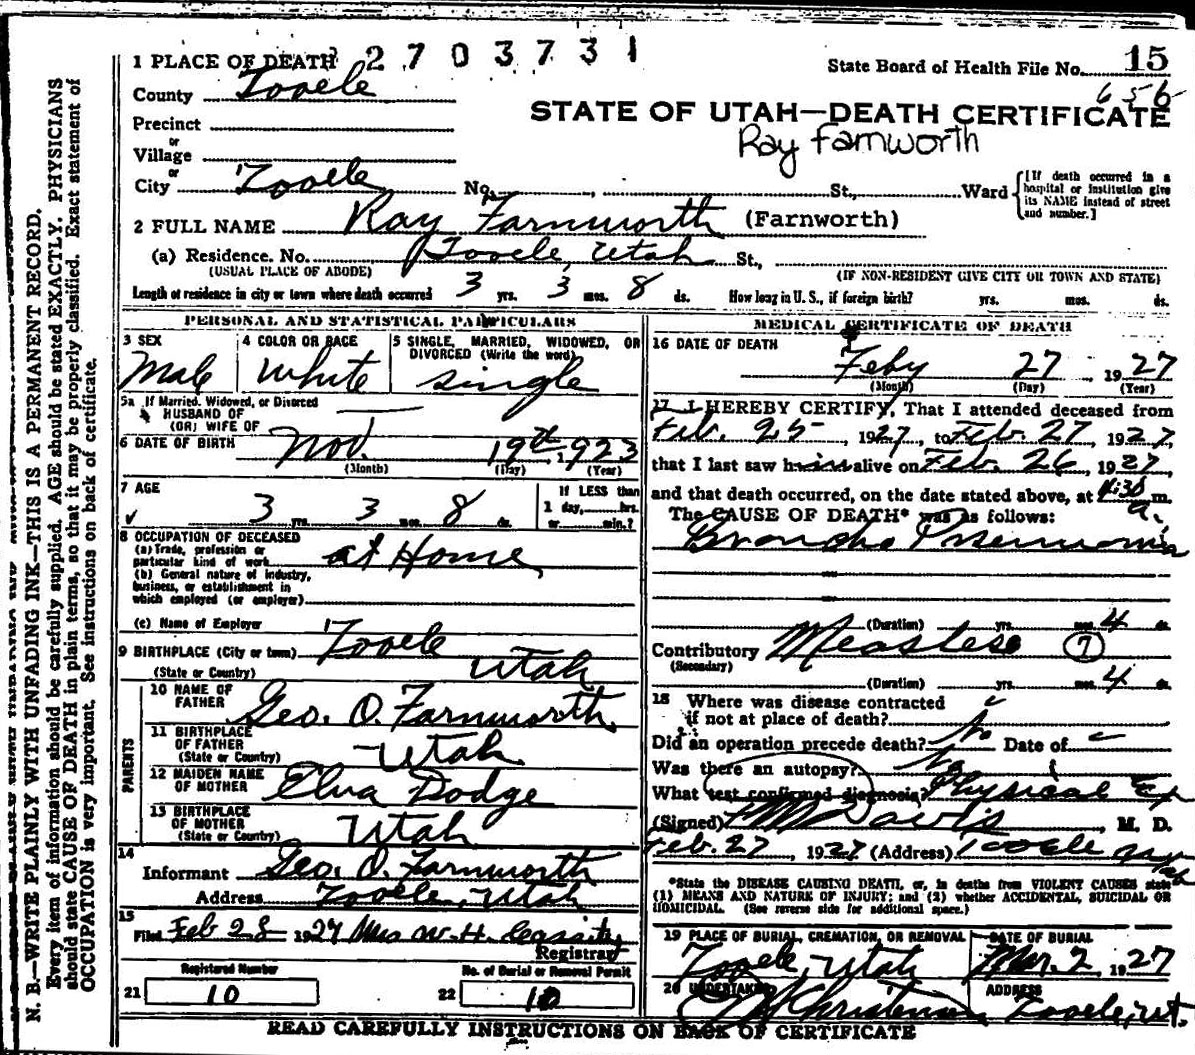 1 PLACE OF DEATH 2 7 0 3 7 3 1
State Board of Health File No. 15
656
County Tooele
STATE OF UTAH—DEATH CERTIFICATE
Ray Farnworth
Precinct
or
Village
or
City Tooele No. , St., Ward
[If death occurred in a hospital or institution give its NAME instead of street and number.]
2 FULL NAME Ray Farnworth (Farnworth)
(a) Residence. No. Tooele, Utah St.,
(USUAL PLACE OF ABODE) (IF NON-RESIDENT GIVE CITY OR TOWN AND STATE)
Length of residence in city or town where death occurred 3 yrs. 3 mos. 8 ds. How long in U. S., if foreign birth? yrs. mos. ds.
PERSONAL AND STATISTICAL PARTICULARS
3 SEX Male
4 COLOR OR RACE White
5 SINGLE, MARRIED, WIDOWED, OR DIVORCED (Write the word) Single
5a If Married, Widowed, or Divorced
HUSBAND OF —
(OR) WIFE OF
6 DATE OF BIRTH Nov. 19th, 1923
(Month) (Day) (Year)
7 AGE 3 yrs. 3 mos. 8 ds.
If LESS than 1 day, hrs. or min.?
8 OCCUPATION OF DECEASED
(a) Trade, profession or particular kind of work at Home
(b) General nature of industry, business, or establishment in which employed (or employer)
(c) Name of Employer
9 BIRTHPLACE (City or town) Tooele
(State or Country) Utah
PARENTS
10 NAME OF FATHER Geo. O. Farnworth
11 BIRTHPLACE OF FATHER (State or Country) Utah
12 MAIDEN NAME OF MOTHER Elva Dodge
13 BIRTHPLACE OF MOTHER (State or Country) Utah
14
Informant Geo. O. Farnworth
Address Tooele, Utah
15
Filed Feb 28 1927 Mrs W. H. Cassity
Registrar
Registered Number
21 10
No. of Burial or Removal Permit
22 10
MEDICAL CERTIFICATE OF DEATH
16 DATE OF DEATH
Feby 27, 1927
(Month) (Day) (Year)
17 I HEREBY CERTIFY, That I attended deceased from
Feb. 25, 1927, to Feb. 27, 1927,
that I last saw him alive on Feb. 26, 1927,
and that death occurred, on the date stated above, at 4:30 a. m.
The CAUSE OF DEATH* was as follows:
Broncho Pneumonia
(Duration) yrs. mos. 4 ds.
Contributory Measles 7
(Secondary)
(Duration) yrs. mos. 4 ds.
18 Where was disease contracted
if not at place of death?
Did an operation precede death? No Date of —
Was there an autopsy? No
What test confirmed diagnosis? Physical Ex
(Signed) Davis, M. D.
Feb. 27, 1927 (Address) Tooele Utah
*State the DISEASE CAUSING DEATH, or, in deaths from VIOLENT CAUSES state
(1) MEANS AND NATURE OF INJURY; and (2) whether ACCIDENTAL, SUICIDAL OR
HOMICIDAL. (See reverse side for additional space.)
19 PLACE OF BURIAL, CREMATION, OR REMOVAL Tooele, Utah
DATE OF BURIAL Mar. 2, 1927
20 UNDERTAKER Christensen
ADDRESS Tooele, Ut.
READ CAREFULLY INSTRUCTIONS ON BACK OF CERTIFICATE
N. B.—WRITE PLAINLY WITH UNFADING INK—THIS IS A PERMANENT RECORD.
Every item of information should be carefully supplied. AGE should be stated EXACTLY. PHYSICIANS
should state CAUSE OF DEATH in plain terms, so that it may be properly classified. Exact statement of
OCCUPATION is very important. See instructions on back of certificate.